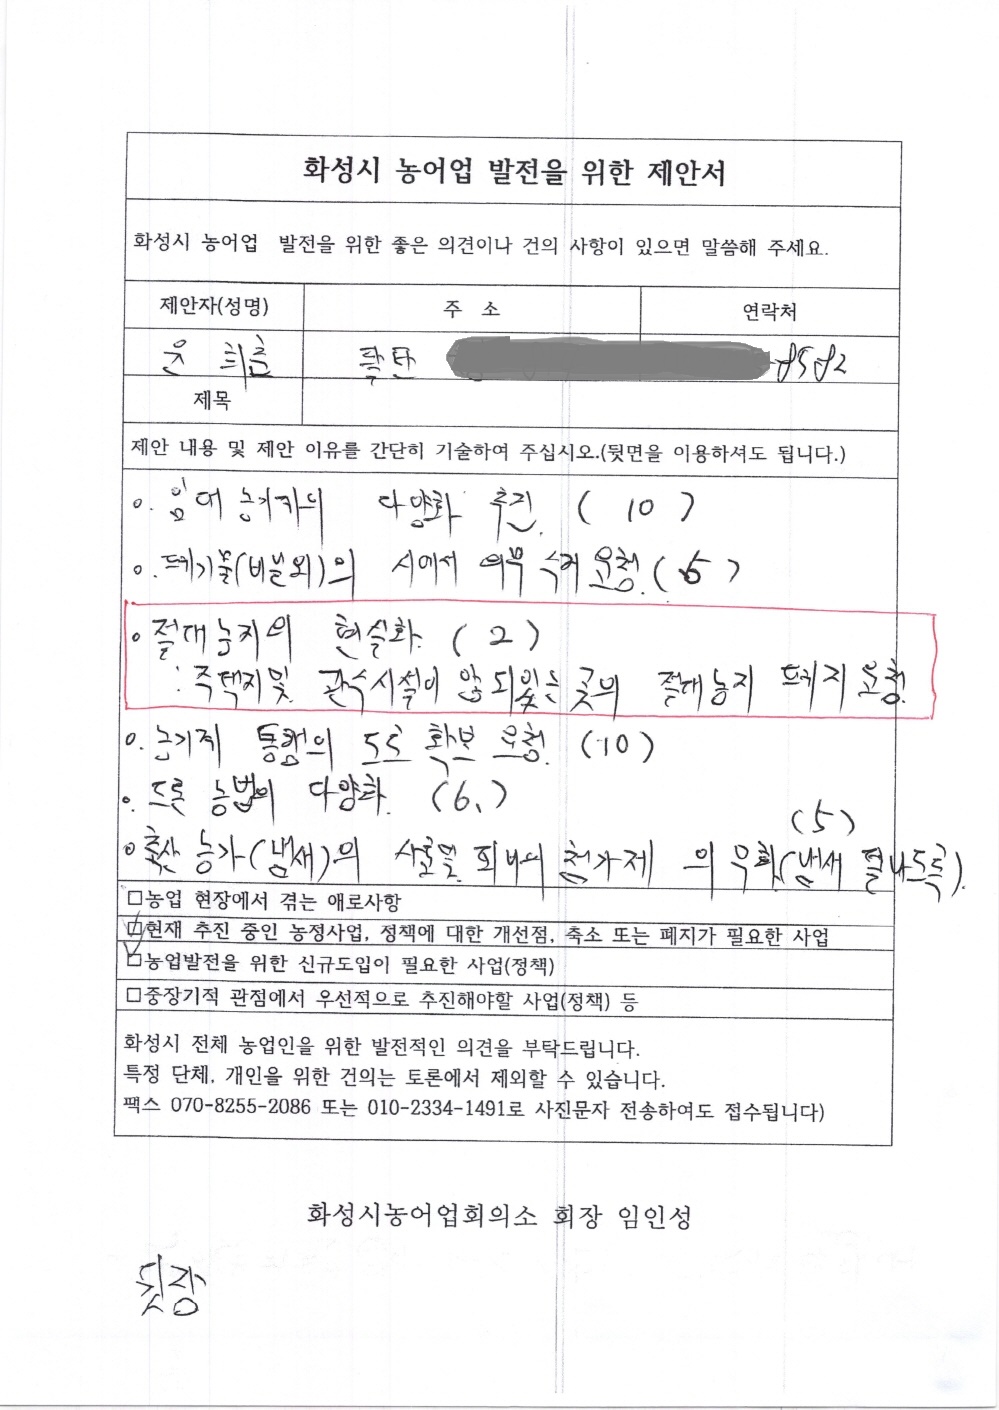 화성시 농어업 발전을 위한 제안서
화성시 농어업 발전을 위한 좋은 의견이나 건의 사항이 있으면 말씀해 주세요.
제안자(성명) 주 소 연락처
윤 희흠 팔탄 8582
제목
제안 내용 및 제안 이유를 간단히 기술하여 주십시오.(뒷면을 이용하셔도 됩니다.)
o. 임대 농기계의 다양화 추진. ( 10 )
o. 폐기물(비분외)의 시에서 의무 수거 요청. ( 5 )
o 절대농지의 현실화. ( 2 )
: 주택지및 관수시설이 안되있는 곳의 절대농지 폐지 요청.
o. 농기계 통행의 도로 확보 요청. (10)
o. 드론 농법의 다양화. (6.)
(5)
o 축사 농가(냄새)의 사료및 첨가제 의 무화(냄새 덜나도록).
□농업 현장에서 겪는 애로사항
□현재 추진 중인 농정사업, 정책에 대한 개선점, 축소 또는 폐지가 필요한 사업
□농업발전을 위한 신규도입이 필요한 사업(정책)
□중장기적 관점에서 우선적으로 추진해야할 사업(정책) 등
화성시 전체 농업인을 위한 발전적인 의견을 부탁드립니다.
특정 단체, 개인을 위한 건의는 토론에서 제외할 수 있습니다.
팩스 070-8255-2086 또는 010-2334-1491로 사진문자 전송하여도 접수됩니다)
화성시농어업회의소 회장 임인성
뒷장